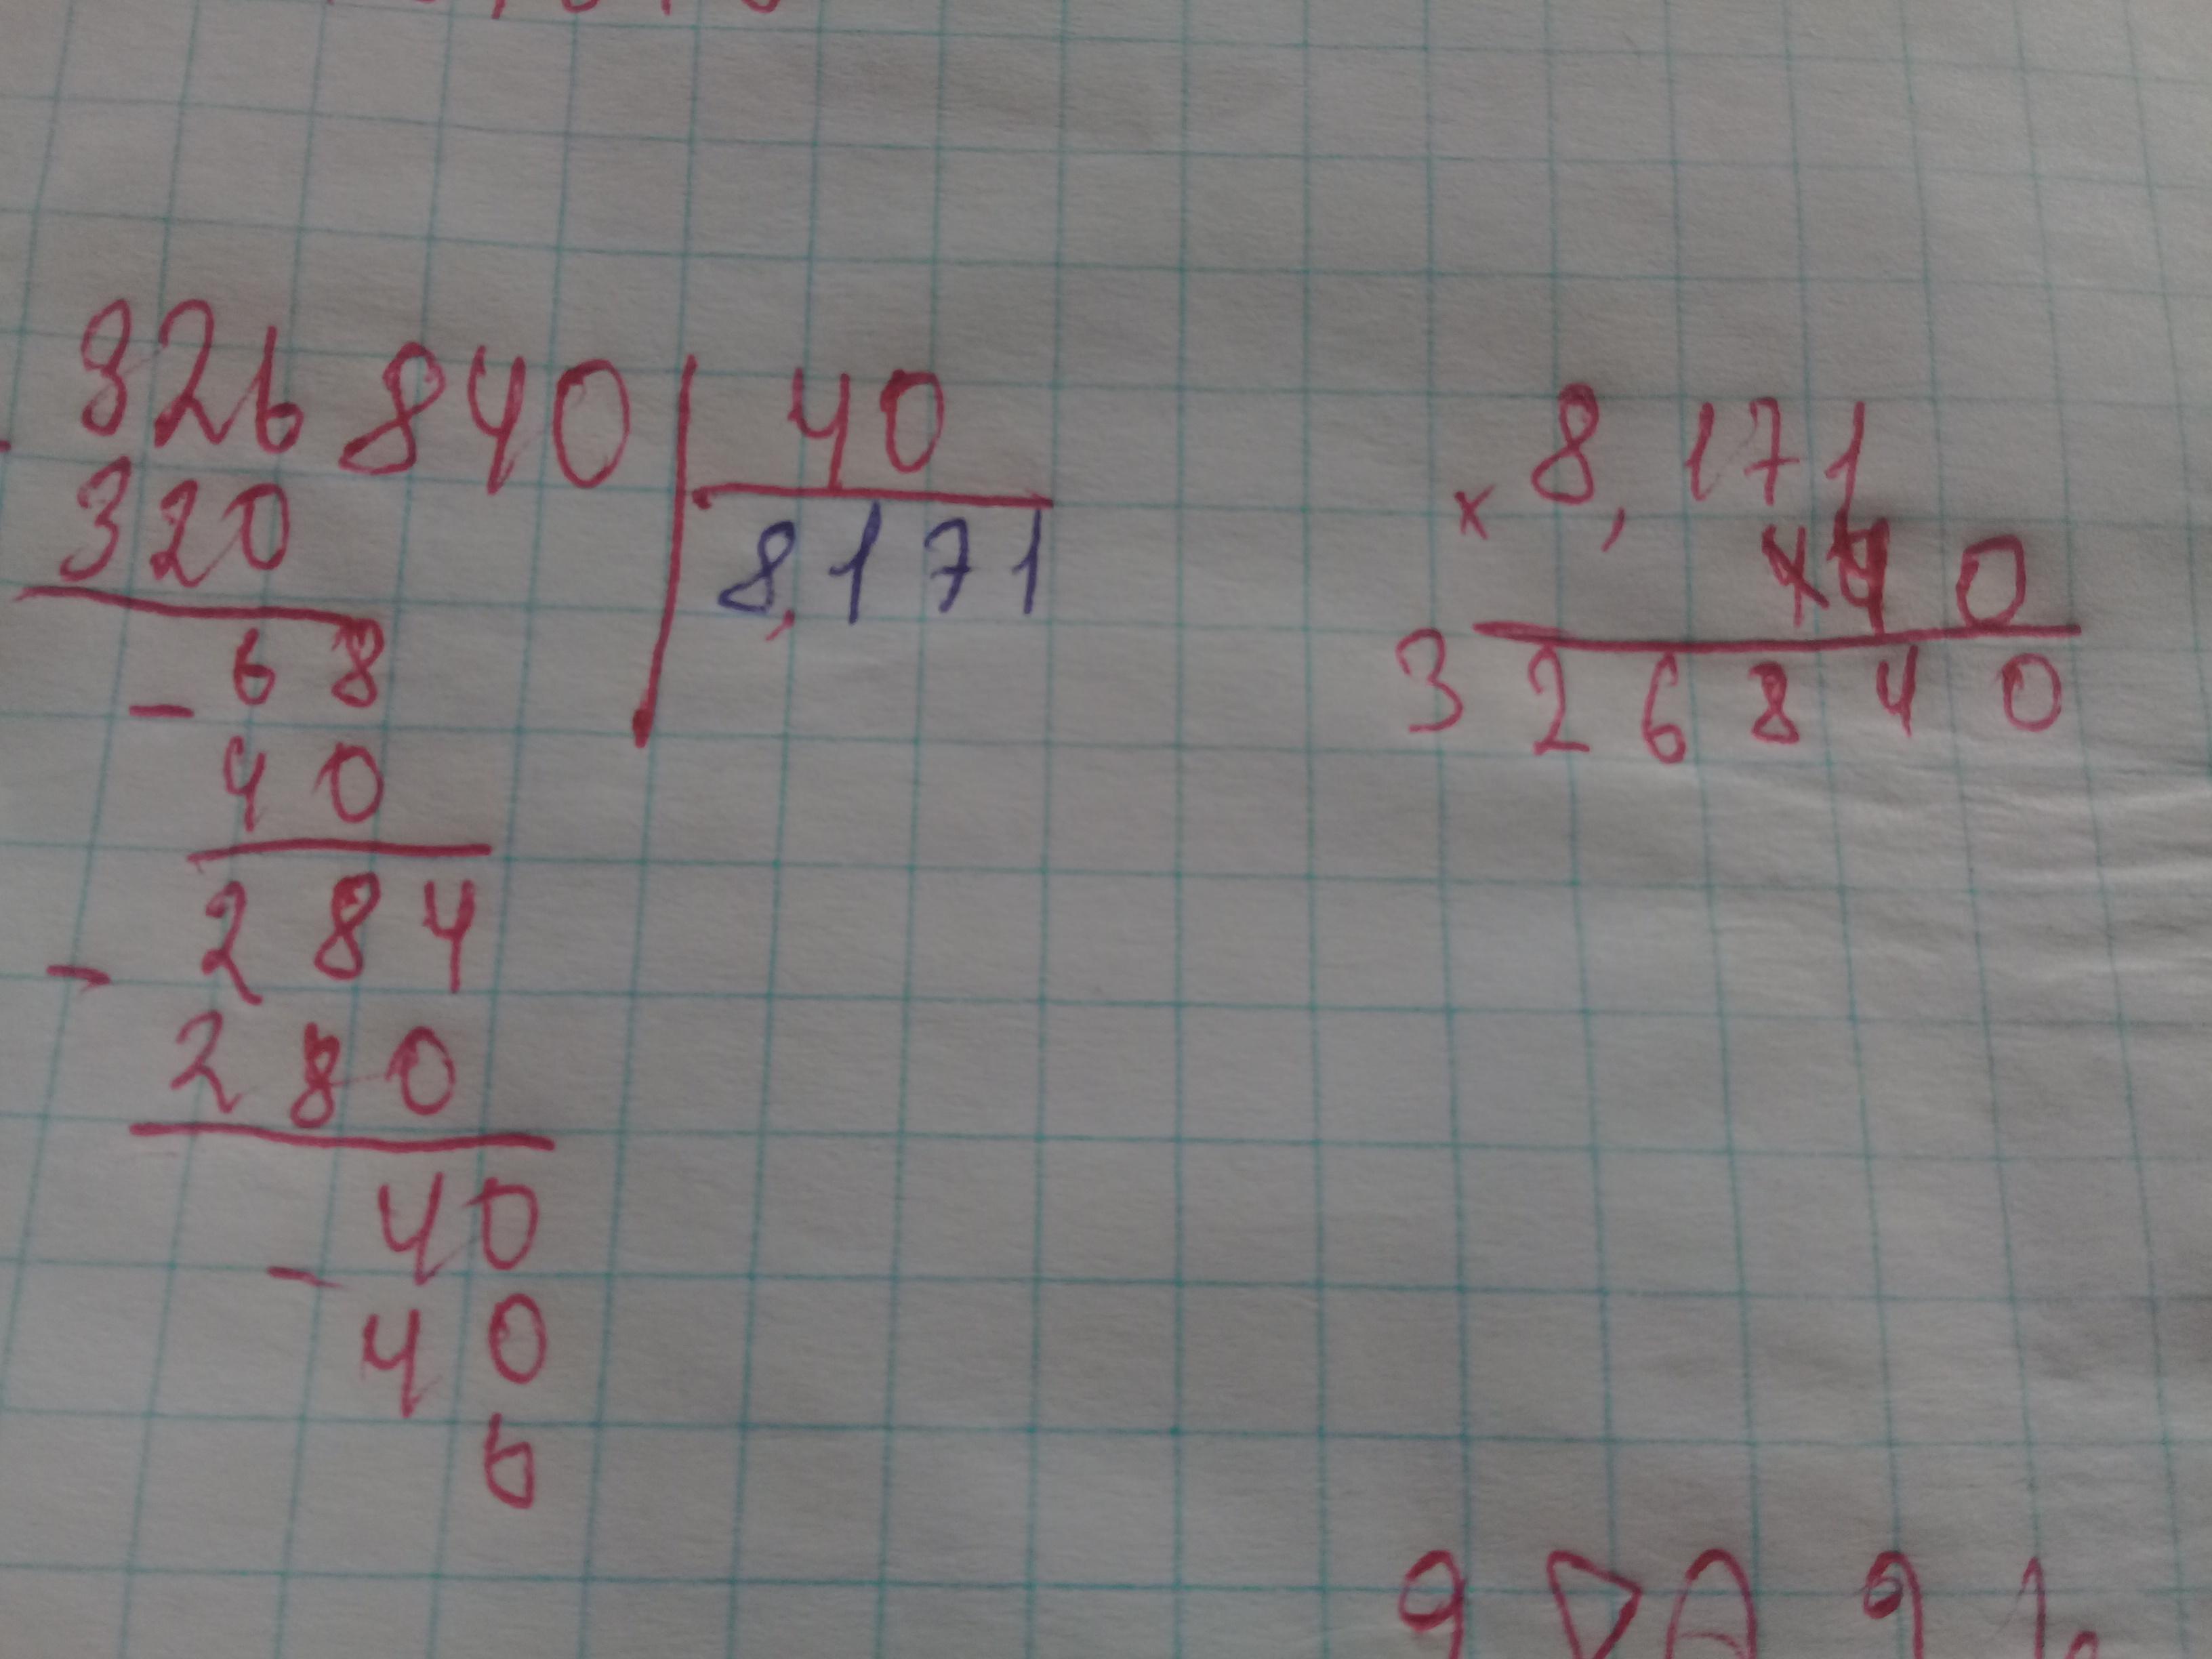 326 840 40
320 8,171
- 68
40
- 284
280
- 40
40
0
× 8,171
40
326840